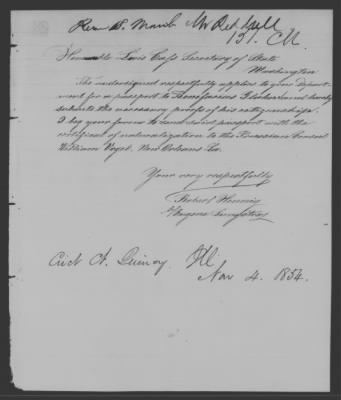 Honorable Lewis Cass Secretary of State
Washington
The undersigned respectfully applies to your Depart-
ment for a passport to Bonifacius and hereby
submits the necessary proofs of his citizenship.
I beg your favor to send said passport with the
certificat of naturalization to the Bavarian Consul
William Vogel, New Orleans La.
Your very respectfully
Robert
Eugene
Quincy Ill
Nov 4. 1854